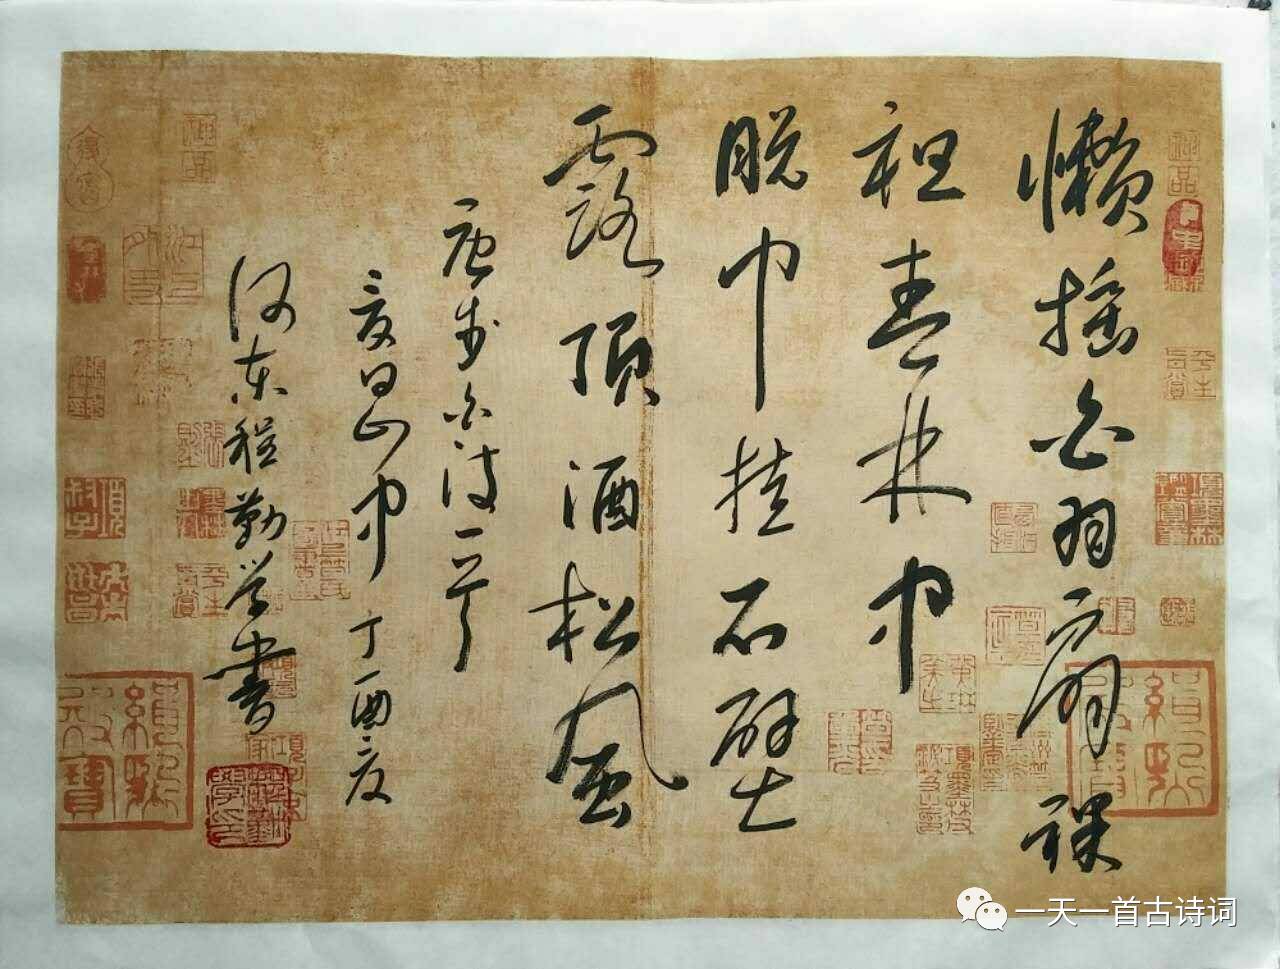 懶摇白羽扇裸
袒青林中
脱巾挂石壁
露頂洒松風
唐李白诗一首
夏日山中丁酉夏
河东程勤学書
一天一首古诗词